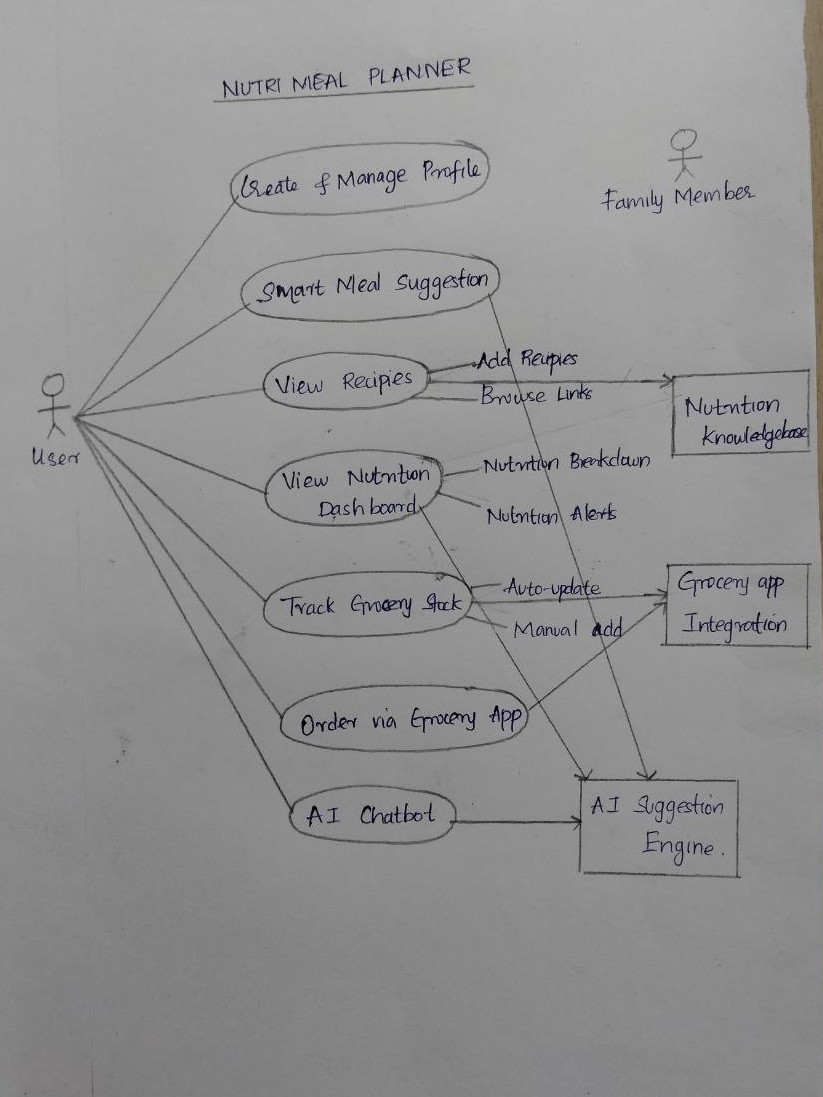 NUTRI MEAL PLANNER
Create & Manage Profile
Family Member
Smart Meal Suggestion
View Recipies
Add Recipies
Browse Links
Nutrition
Knowledgebase
User
View Nutrition
Dashboard
Nutrition Breakdown
Nutrition Alerts
Track Grocery Stock
Auto-update
Manual add
Grocery app
Integration
Order via Grocery App
AI Chatbot
AI Suggestion
Engine.